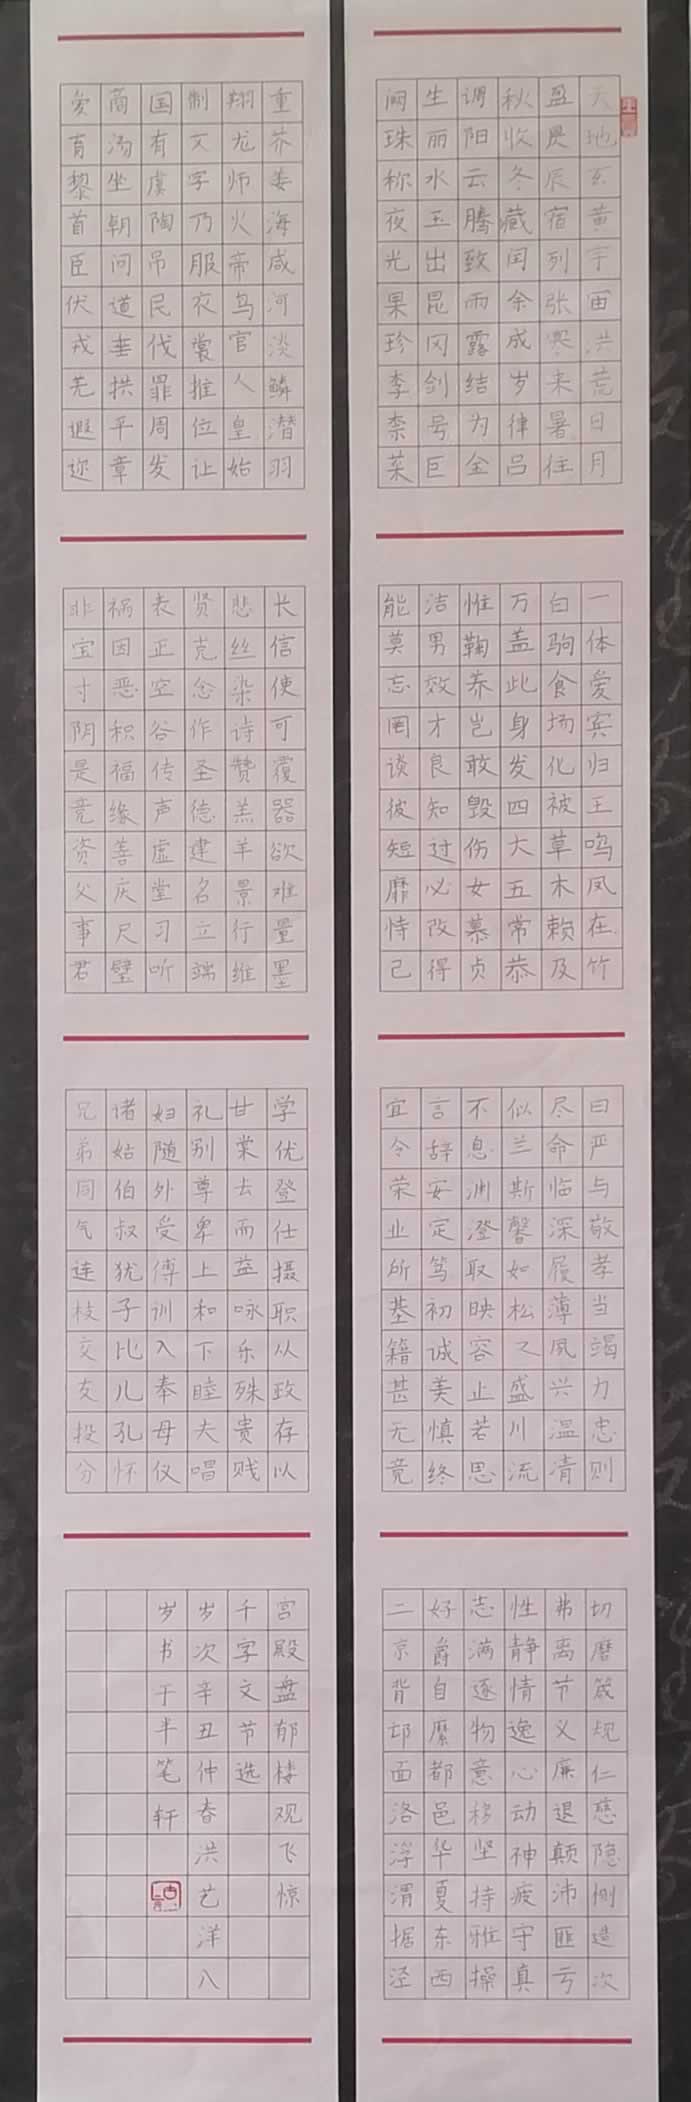 天地玄黄宇宙洪荒日月
盈昃辰宿列张寒来暑往
秋收冬藏闰余成岁律吕
调阳云腾致雨露结为金
生丽水玉出昆冈剑号巨
阙珠称夜光果珍李柰菜
重芥姜海咸河淡鳞潜羽
翔龙师火帝鸟官人皇始
制文字乃服衣裳推位让
国有虞陶吊民伐罪周发
商汤坐朝问道垂拱平章
爱育黎首臣伏戎羌遐迩
一体爱宾归王鸣凤在竹
白驹食场化被草木赖及
万盖此身发四大五常恭
惟鞠养岂敢毁伤女慕贞
洁男效才良知过必改得
能莫忘罔谈彼短靡恃己
长信使可覆器欲难量墨
悲丝染诗赞羔羊景行维
贤克念作圣德建名立端
表正空谷传声虚堂习听
祸因恶积福缘善庆尺璧
非宝寸阴是竞资父事君
曰严与敬孝当竭力忠则
尽命临深履薄夙兴温凊
似兰斯馨如松之盛川流
不息渊澄取映容止若思
言辞安定笃初诚美慎终
宜令荣业所基籍甚无竟
学优登仕摄职从政存以
甘棠去而益咏乐殊贵贱
礼别尊卑上和下睦夫唱
妇随外受傅训入奉母仪
诸姑伯叔犹子比儿孔怀
兄弟同气连枝交友投分
切磨箴规仁慈隐恻造次
弗离节义廉退颠沛匪亏
性静情逸心动神疲守真
志满逐物意移坚持雅操
好爵自縻都邑华夏东西
二京背邙面洛浮渭据泾
宫殿盘郁楼观飞惊
千字文节选
岁次辛丑仲春洪艺洋八
岁书于半笔轩